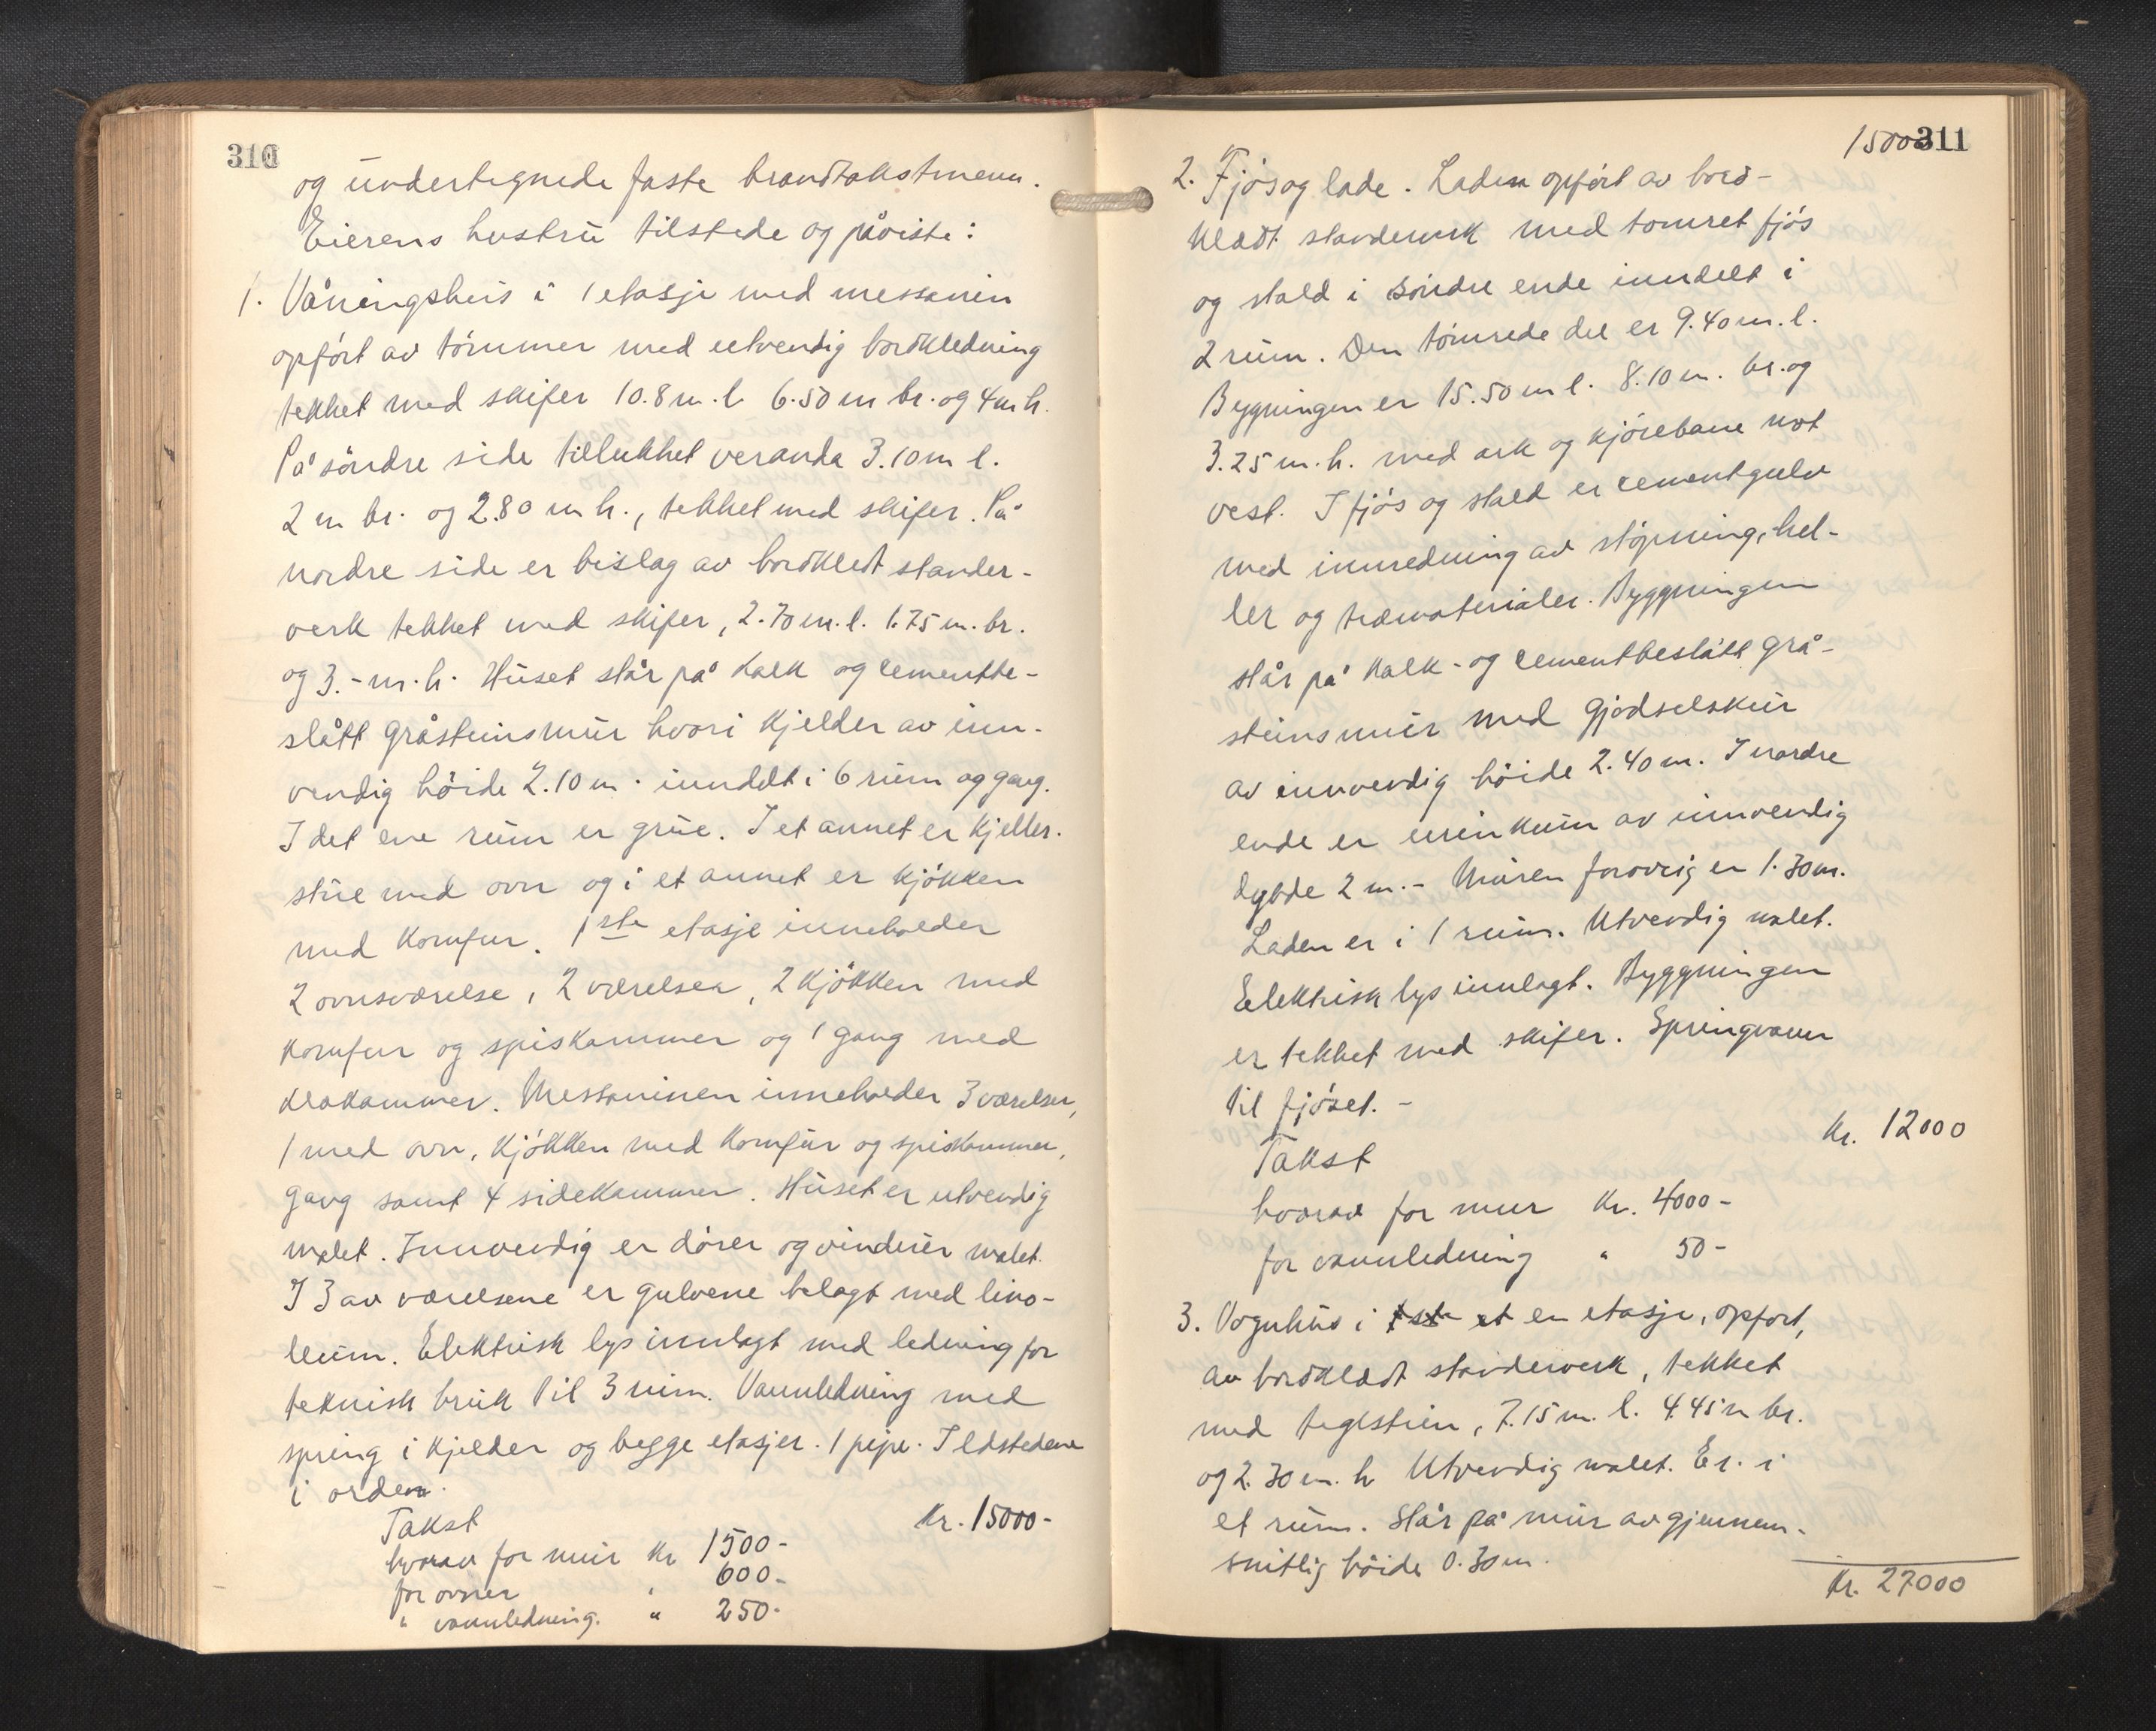 310
og undertegnede faste brandtakstmenn.
Eierens hustru tilstede og påviste:
1. Våningshus i 1 etasje med messanin
opført av tømmer med utvendig bordkledning
tekket med skifer 10.8 m. l. 6.50 m br. og 4 m h.
På søndre side tillukket veranda 3.10 m l.
2 m br. og 2.80 m h., tekket med skifer. På
nordre side er bislag av bordkledt stander-
verk tekket med skifer, 2.70 m. l. 1.75 m. br.
og 3.- m. h. Huset står på kalk og cementbe-
slått gråsteinsmur hvori kjelder av inn-
vendig høide 2.10 m. inndelt i 6 rum og gang.
I det ene rum er grue. I et annet er kjeller-
stue med ovn og i et annet er kjøkken
med komfur. 1ste etasje inneholder
2 ovnsværelse, 2 værelser, 2 kjøkken med
komfur og spiskammer og 1 gang med
klokammer. Messaninen inneholder 3 værelser,
1 med ovn, kjøkken med komfur og spiskammer,
gang samt 4 sidekammer. Huset er utvendig
malet. Innvendig er dører og vinduer malet.
I 3 av værelsene er gulvene belagt med lino-
leum. Elektrisk lys innlagt med ledning for
teknisk bruk til 3 rum. Vannledning med
spring i kjelder og begge etasjer. 1 pipe. Ildstedene
i orden.
Takst Kr. 15000-
hvorav for mur kr 1500-
for ovner " 600-
" vannledning. " 250-
1500 311
2. Fjøs og lade. Laden opført av bord-
klædt standerverk med tomret fjøs
og stald i søndre ende inndelt i
2 rum. Den tømrede del er 9.40 m. l.
Bygningen er 15.50 m l. 8.10 m. br. og
3.25 m. h. med ark og kjørebane mot
vest. I fjøs og stald er cementgulv
med innredning av støpning, hel-
ler og træmaterialer. Byggningen
står på kalk- og cementbeslått grå-
steinsmur med gjødselskur
av innvendig høide 2.40 m. I nordre
ende er urinkum av innvendig
dybde 2 m.- Muren forøvrig er 1.30 m.
Laden er i 1 rum. Utvendig malet.
Elektrisk lys innlagt. Byggningen
er tekket med skifer. Springvann
til fjøset. -
Takst Kr. 12000
hvorav for mur Kr. 4000-
for vannledning " 50-
3. Vognhus i en etasje, opført,
av bordklædt standerverk, tekket
med teglstein, 7.15 m. l. 4.45 m br.
og 2.30 m. h Utvendig malet. Er i
et rum. Står på mur av gjennem-
snitlig høide 0.30 m.
Kr. 27000